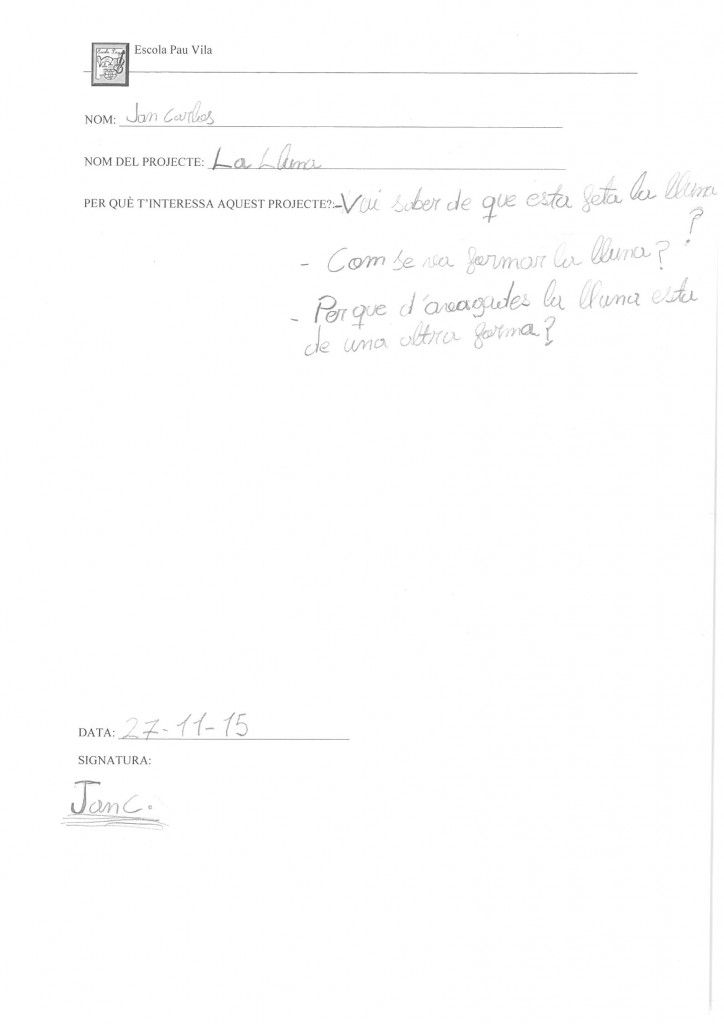 Escola Pau Vila
NOM: Jan Carlos
NOM DEL PROJECTE: La Lluna
PER QUÈ T'INTERESSA AQUEST PROJECTE?: -Vui saber de que esta feta la lluna
?
- Com se va formar la lluna?
- Per que d'avagades la lluna esta
de una altra forma?
DATA: 27-11-15
SIGNATURA:
Jan C.